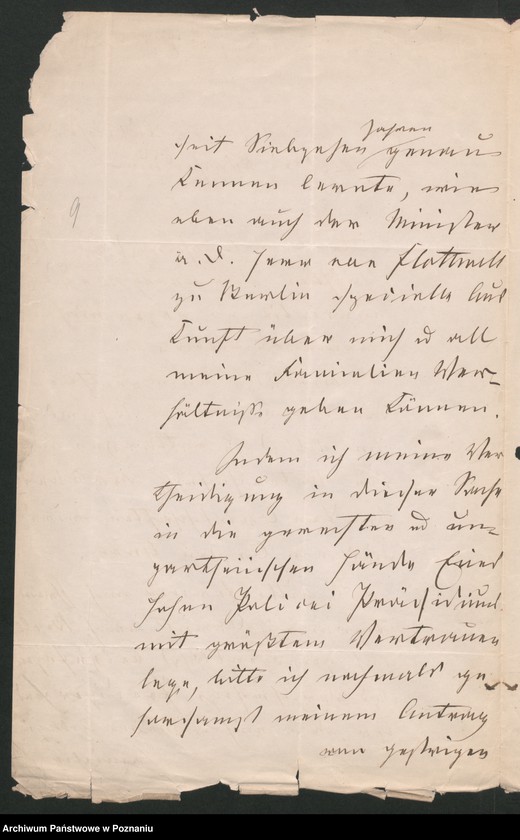 Jahren
seit Siebzehen genau
kennen lernte, wie
eben auch der Minister
a. D. Herr von Flottwell
zu Berlin specielle Aus
kunft über mich u all
meine Familien Ver-
hältniße geben können.
Indem ich meine Ver
theidigung in dieser Sache
in die gerechten u un-
partheiischen Hände Eines
hohen Polizei Präsidiums
mit größtem Vertrauen
lege, bitte ich nochmals ge
horsamst meinem Antrag
vom gestrigen
9
Archiwum Państwowe w Poznaniu